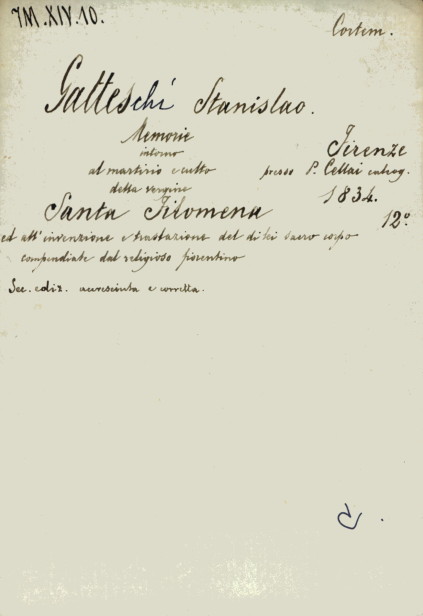 IM.XIV.10.
Contem.
Gatteschi Stanislao.
Memorie
intorno
al martirio e culto
della vergine
Santa Filomena
ed all'invenzione e traslazione del di lei sacro corpo
compendiate dal religioso fiorentino
Sec. ediz. accresciuta e corretta.
Firenze
presso P. Cellai
1834.
12°